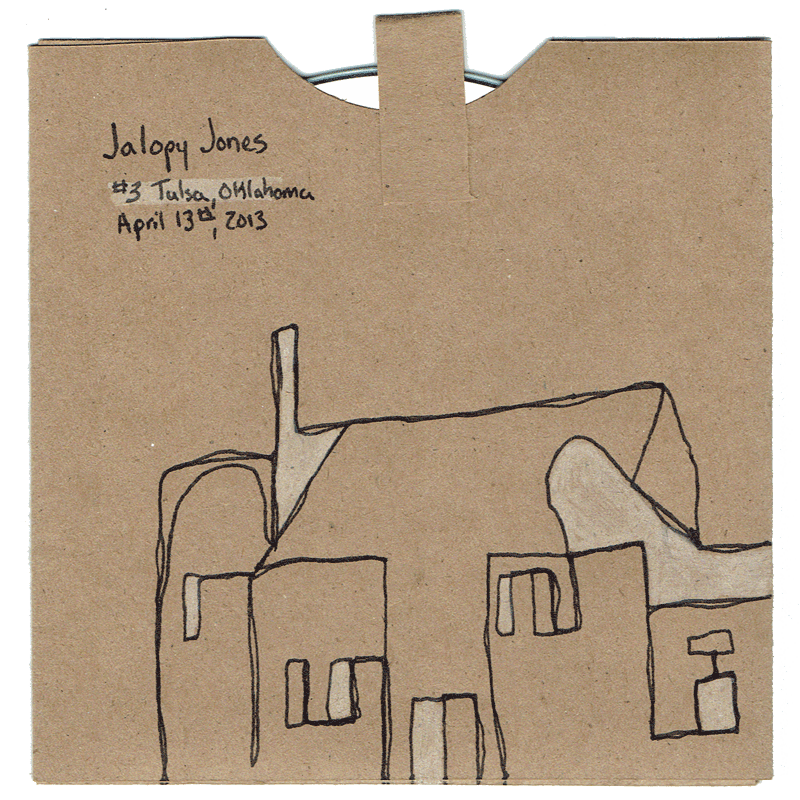 Jalopy Jones
#3 Tulsa, Oklahoma
April 13th, 2013